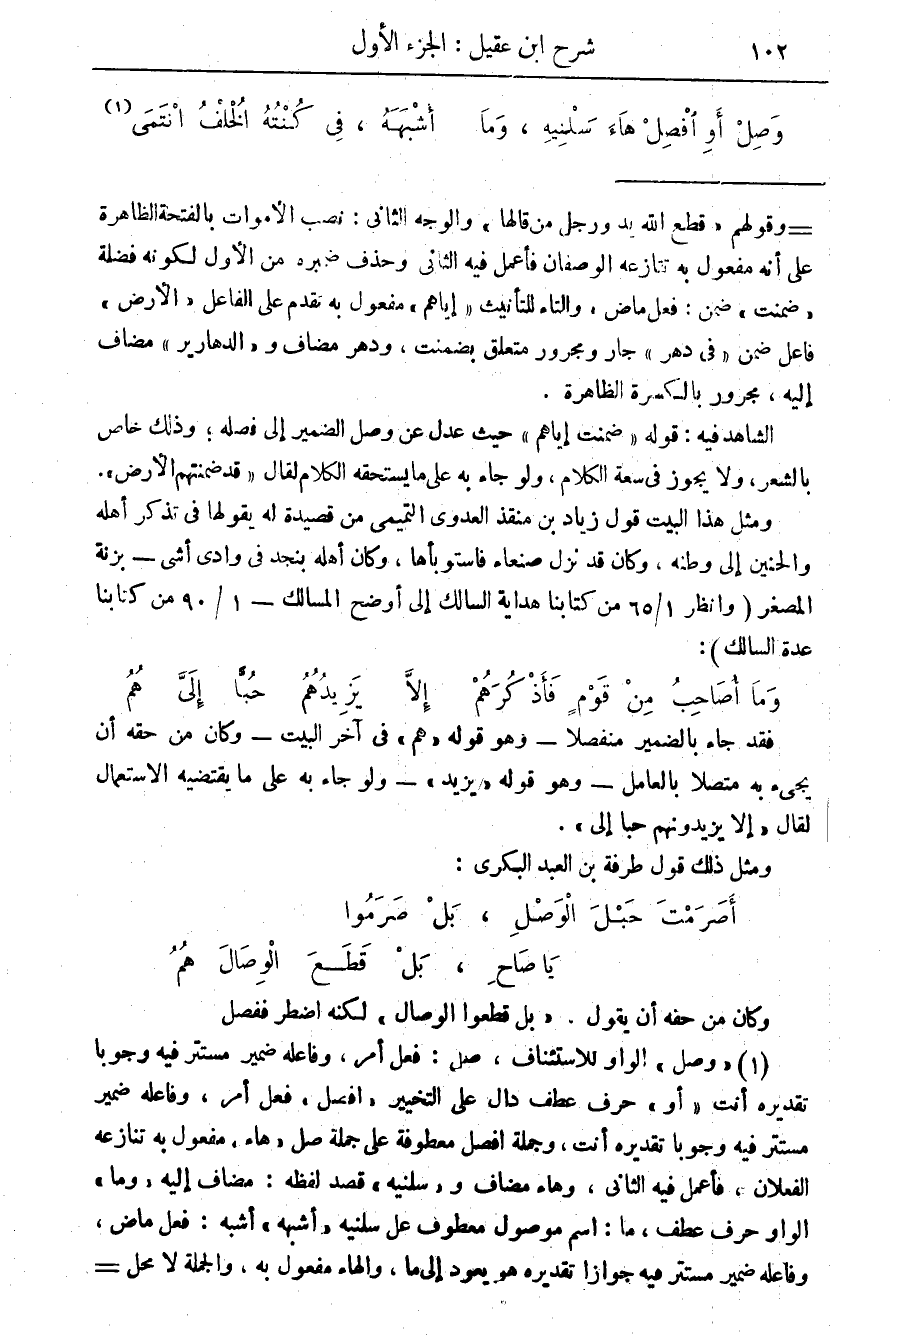 ١٠٢ شرح ابن عقيل : الجزء الأول
وَصِلْ أَوِ ٱفْصِلْ هَاءَ سَلْنِيهِ ، وَمَا أَشْبَهَهُ ، فِى كُنْتُهُ الْخُلْفُ انْتَمَى (١)
= وقولهم « قطع الله يد ورجل من قالها » والوجه الثانى : نصب الأموات بالفتحة الظاهرة
على أنه مفعول به تنازعه الوصفان فأعمل فيه الثانى وحذف ضميره من الأول لكونه فضلة
« ضمنت » ضمن : فعل ماض ، والتاء للتأنيث « إياهم » مفعول به تقدم على الفاعل « الأرض »
فاعل ضمن « فى دهر » جار ومجرور متعلق بضمنت ، ودهر مضاف و « الدهارير » مضاف
إليه ، مجرور بالكسرة الظاهرة .
الشاهد فيه : قوله « ضمنت إياهم » حيث عدل عن وصل الضمير إلى فصله ؛ وذلك خاص
بالشعر ، ولا يجوز فى سعة الكلام ، ولو جاء به على ما يستحقه الكلام لقال « قد ضمنتهم الأرض ».
ومثل هذا البيت قول زياد بن منقذ العدوى التميمى من قصيدة له يقولها فى تذكر أهله
والحنين إلى وطنه ، وكان قد نزل صنعاء فاستوبأها ، وكان أهله بنجد فى وادى أشى — بزنة
المصغر ( وانظر ٦٥/١ من كتابنا هداية السالك إلى أوضح المسالك — ١ / ٩٠ من كتابنا
عدة السالك ) :
وَمَا أُصَاحِبُ مِنْ قَوْمٍ فَأَذْكُرَهُمْ إِلاَّ يَزِيدُهُمُ حُبًّا إِلَىَّ هُمُ
فقد جاء بالضمير منفصلا — وهو قوله « هم » فى آخر البيت — وكان من حقه أن
يجىء به متصلا بالعامل — وهو قوله « يزيد » — ولو جاء به على ما يقتضيه الاستعمال
لقال « إلا يزيدونهم حبا إلى » .
ومثل ذلك قول طرفة بن العبد البكرى :
أَصَرَمْتَ حَبْلَ الْوَصْلِ ، بَلْ صَرَمُوا
يَا صَاحِ ، بَلْ قَطَعَ الْوِصَالَ هُمُ
وكان من حقه أن يقول . « بل قطعوا الوصال » لكنه اضطر ففصل
(١) « وصل » الواو للاستئناف ، صل : فعل أمر ، وفاعله ضمير مستتر فيه وجوبا
تقديره أنت « أو » حرف عطف دال على التخيير « افصل » فعل أمر ، وفاعله ضمير
مستتر فيه وجوبا تقديره أنت ، وجملة افصل معطوفة على جملة صل « هاء » مفعول به تنازعه
الفعلان ، فأعمل فيه الثانى ، وهاء مضاف و « سلنيه » قصد لفظه : مضاف إليه « وما »
الواو حرف عطف ، ما : اسم موصول معطوف على سلنيه « أشبهه » أشبه : فعل ماض ،
وفاعله ضمير مستتر فيه جوازا تقديره هو يعود إلى ما ، والهاء مفعول به ، والجملة لا محل =